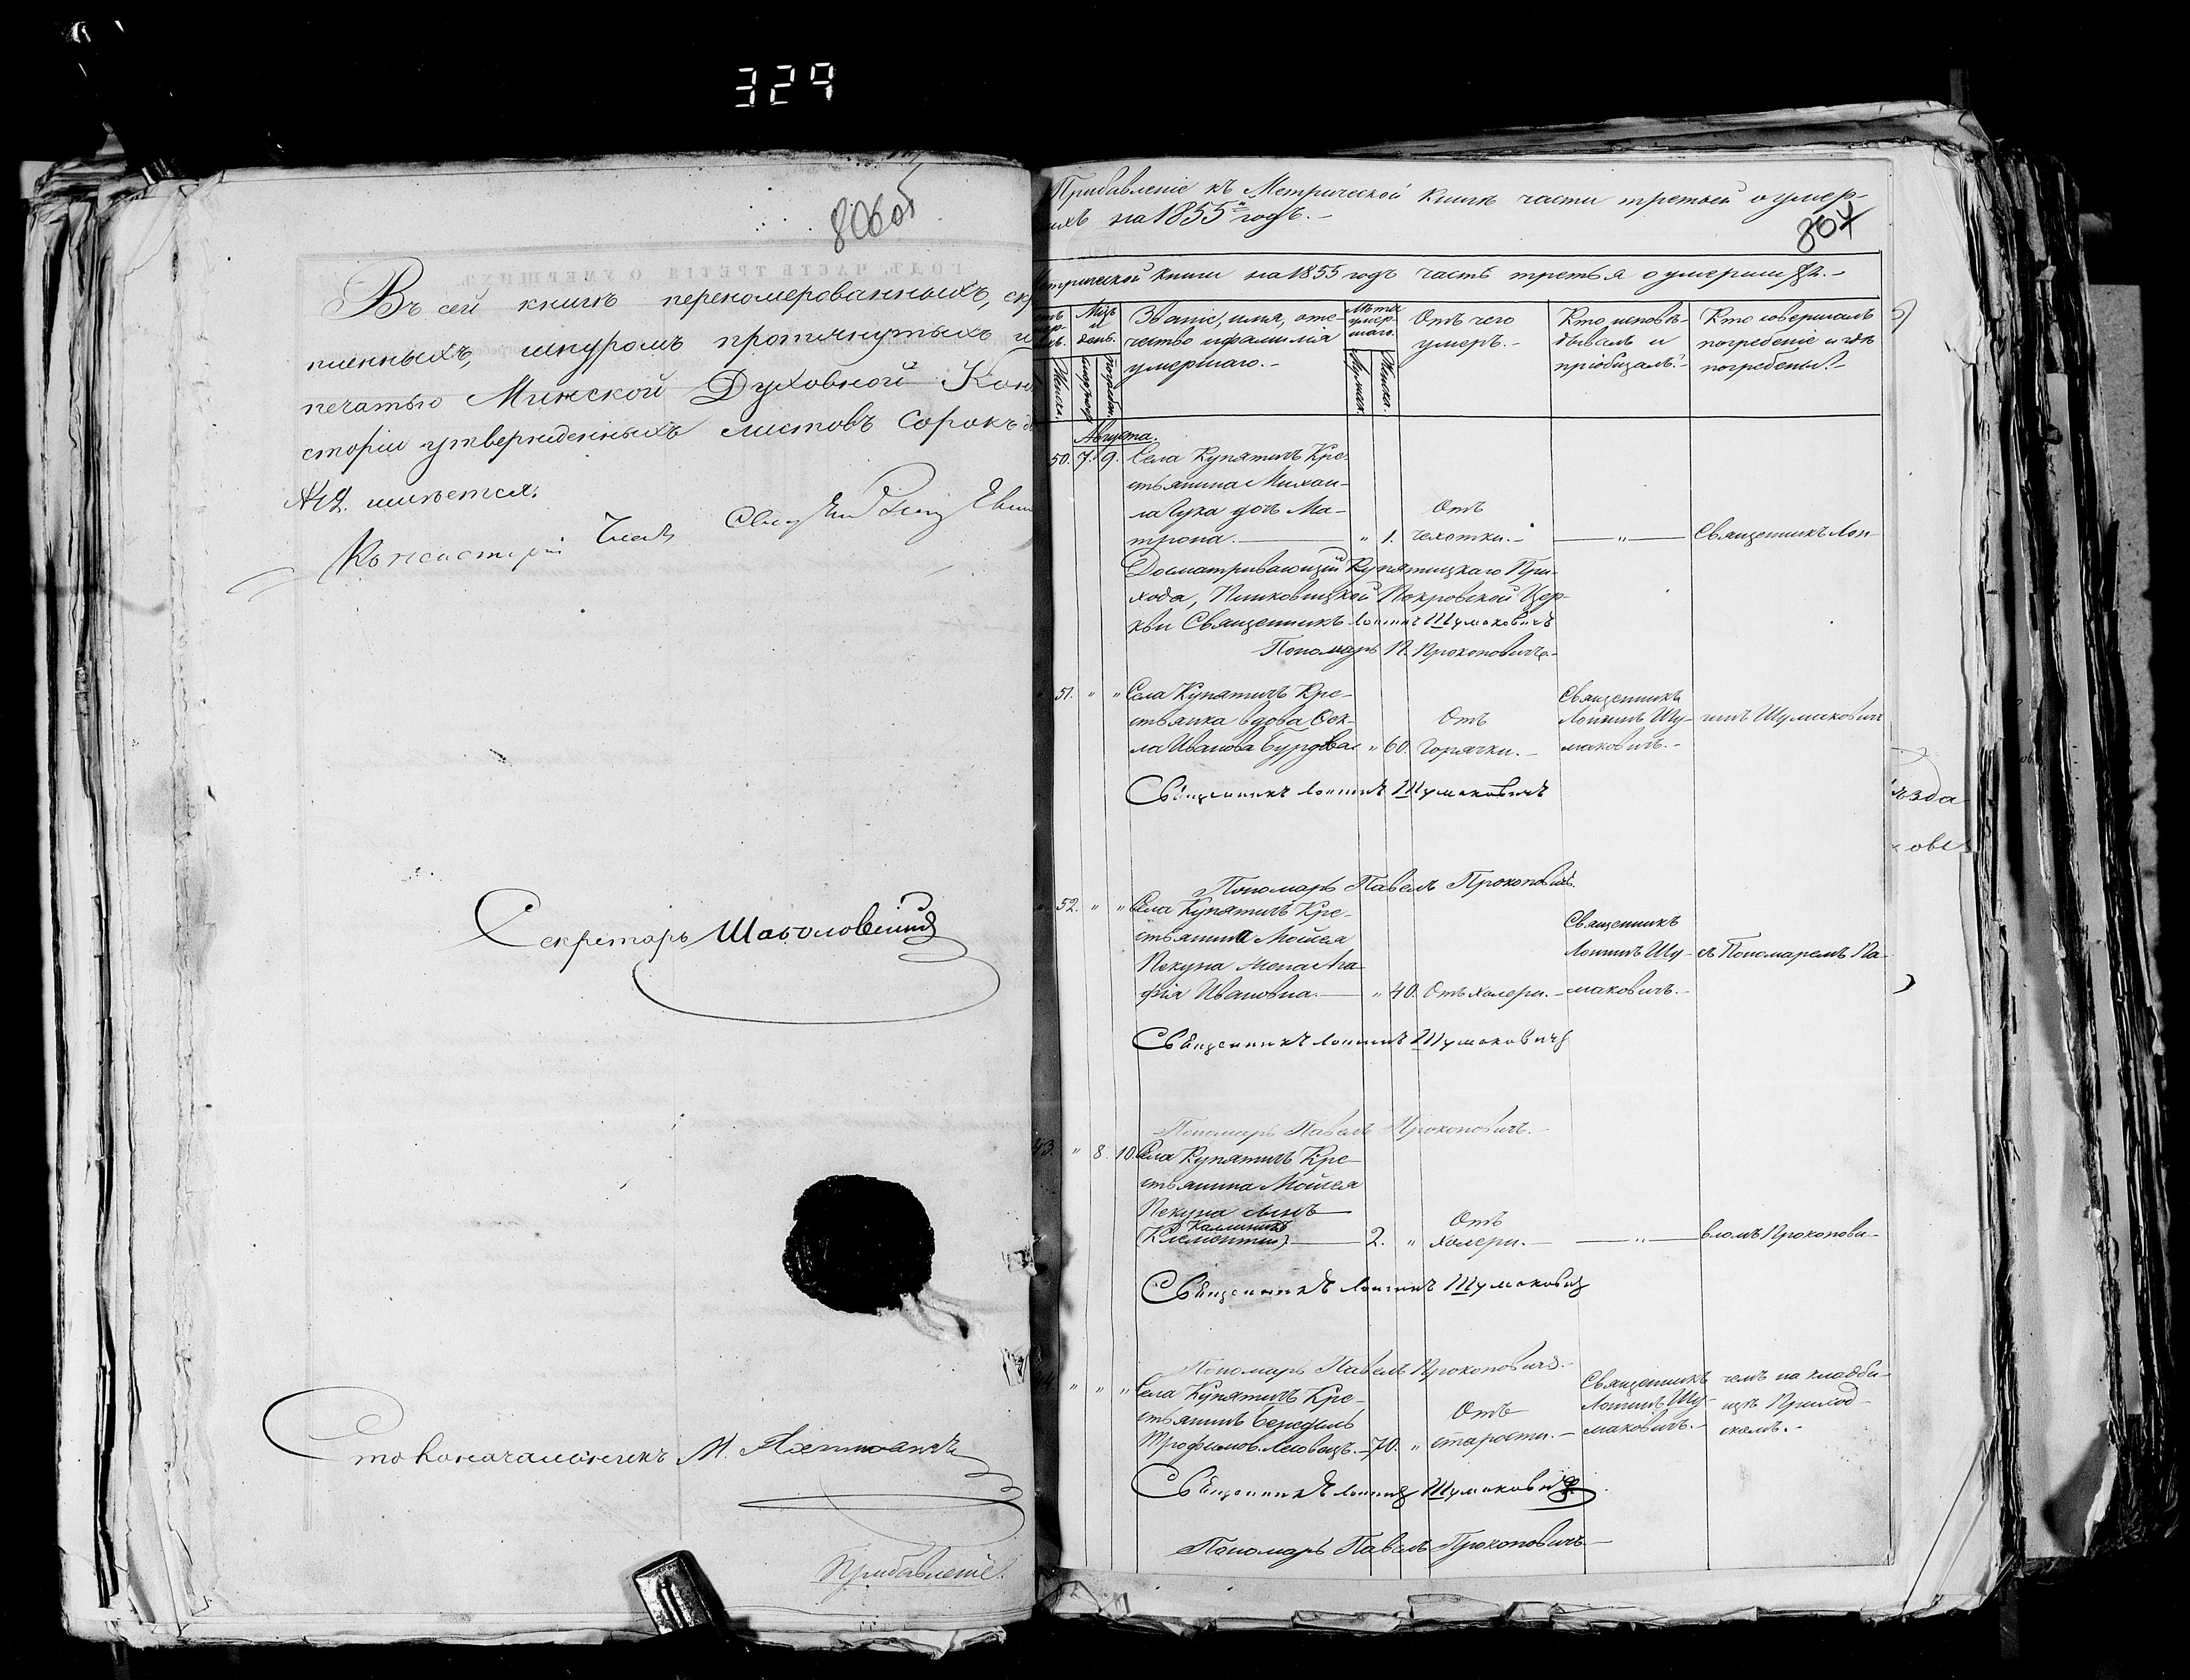 329
806об
Въ сей книгѣ перенумерованныхъ, скр
пленныхъ, шнуромъ протянутыхъ и
печатью Минской Духовной Кон
сторіи утвержденныхъ листовъ сорокъ
имѣется.
Консисторіи Членъ
Секретарь
Столоначальникъ М.
Прибавленіе.
Прибавленіе къ Метрической Книгѣ части третьей о умер-
ихъ на 1855й годъ.-
807
етрической книги на 1855 годъ часть третья о умершихъ.-
Мцъ и день.
Званіе, имя, оте-
чество и фамилія
умершаго.-
Лѣта умер-
шаго.
Отъ чего
умеръ.-
Кто исповѣ-
дывалъ и
пріобщалъ.-
Кто совершалъ
погребеніе и гдѣ
погребены.-
Женска.
Мужска.
Женска.
Августа.
50. 7. 9. Села Купятичъ Кре-
стьянина Михаи-
ла Гука дочь Ма-
трона. " 1. Отъ чехотки.- " Священникъ Лон-
Досматривающій Купятицкаго При-
хода, Пинковицкой Покровской Цер-
кви Священникъ Лонгинъ Шумаковичъ
Пономарь П. Прокоповичъ.-
51. " " Села Купятичъ Кре-
стьянка вдова Фек-
ла Иванова " 60. Отъ Горячки.- Священникъ Лонгинъ Шу-маковичъ.- гинъ Шумакович
Священникъ Лонгинъ Шумаковичъ
Пономарь Павелъ Прокоповичъ.
52. " " Села Купятичъ Кре-
стьянина Мойсея
Пекуна жена Ага-
фія Ивановна. " 40. Отъ холери.- Священникъ Лонгинъ Шу-маковичъ.- съ Пономаремъ Па-
Священникъ Лонгинъ Шумаковичъ
Пономарь Павелъ Прокоповичъ.-
43. " 8. 10. Села Купятичъ Кре-
стьянина Мойсея
Пекуна сынъ
Каллиникъ
(Климентій) 2. " Отъ холери.- " вломъ Прокопови-
Священникъ Лонгинъ Шумаковичъ
Пономарь Павелъ Прокоповичъ.-
" " " Села Купятичъ Кре-
стьянинъ
Трофимовъ 70. " Отъ старости.- Священникъ Лонгинъ Шу-маковичъ.- чемъ на кладби-щѣ Приход-скомъ.-
Священникъ Лонгинъ Шумаковичъ
Пономарь Павелъ Прокоповичъ.-
ѣзда
ове